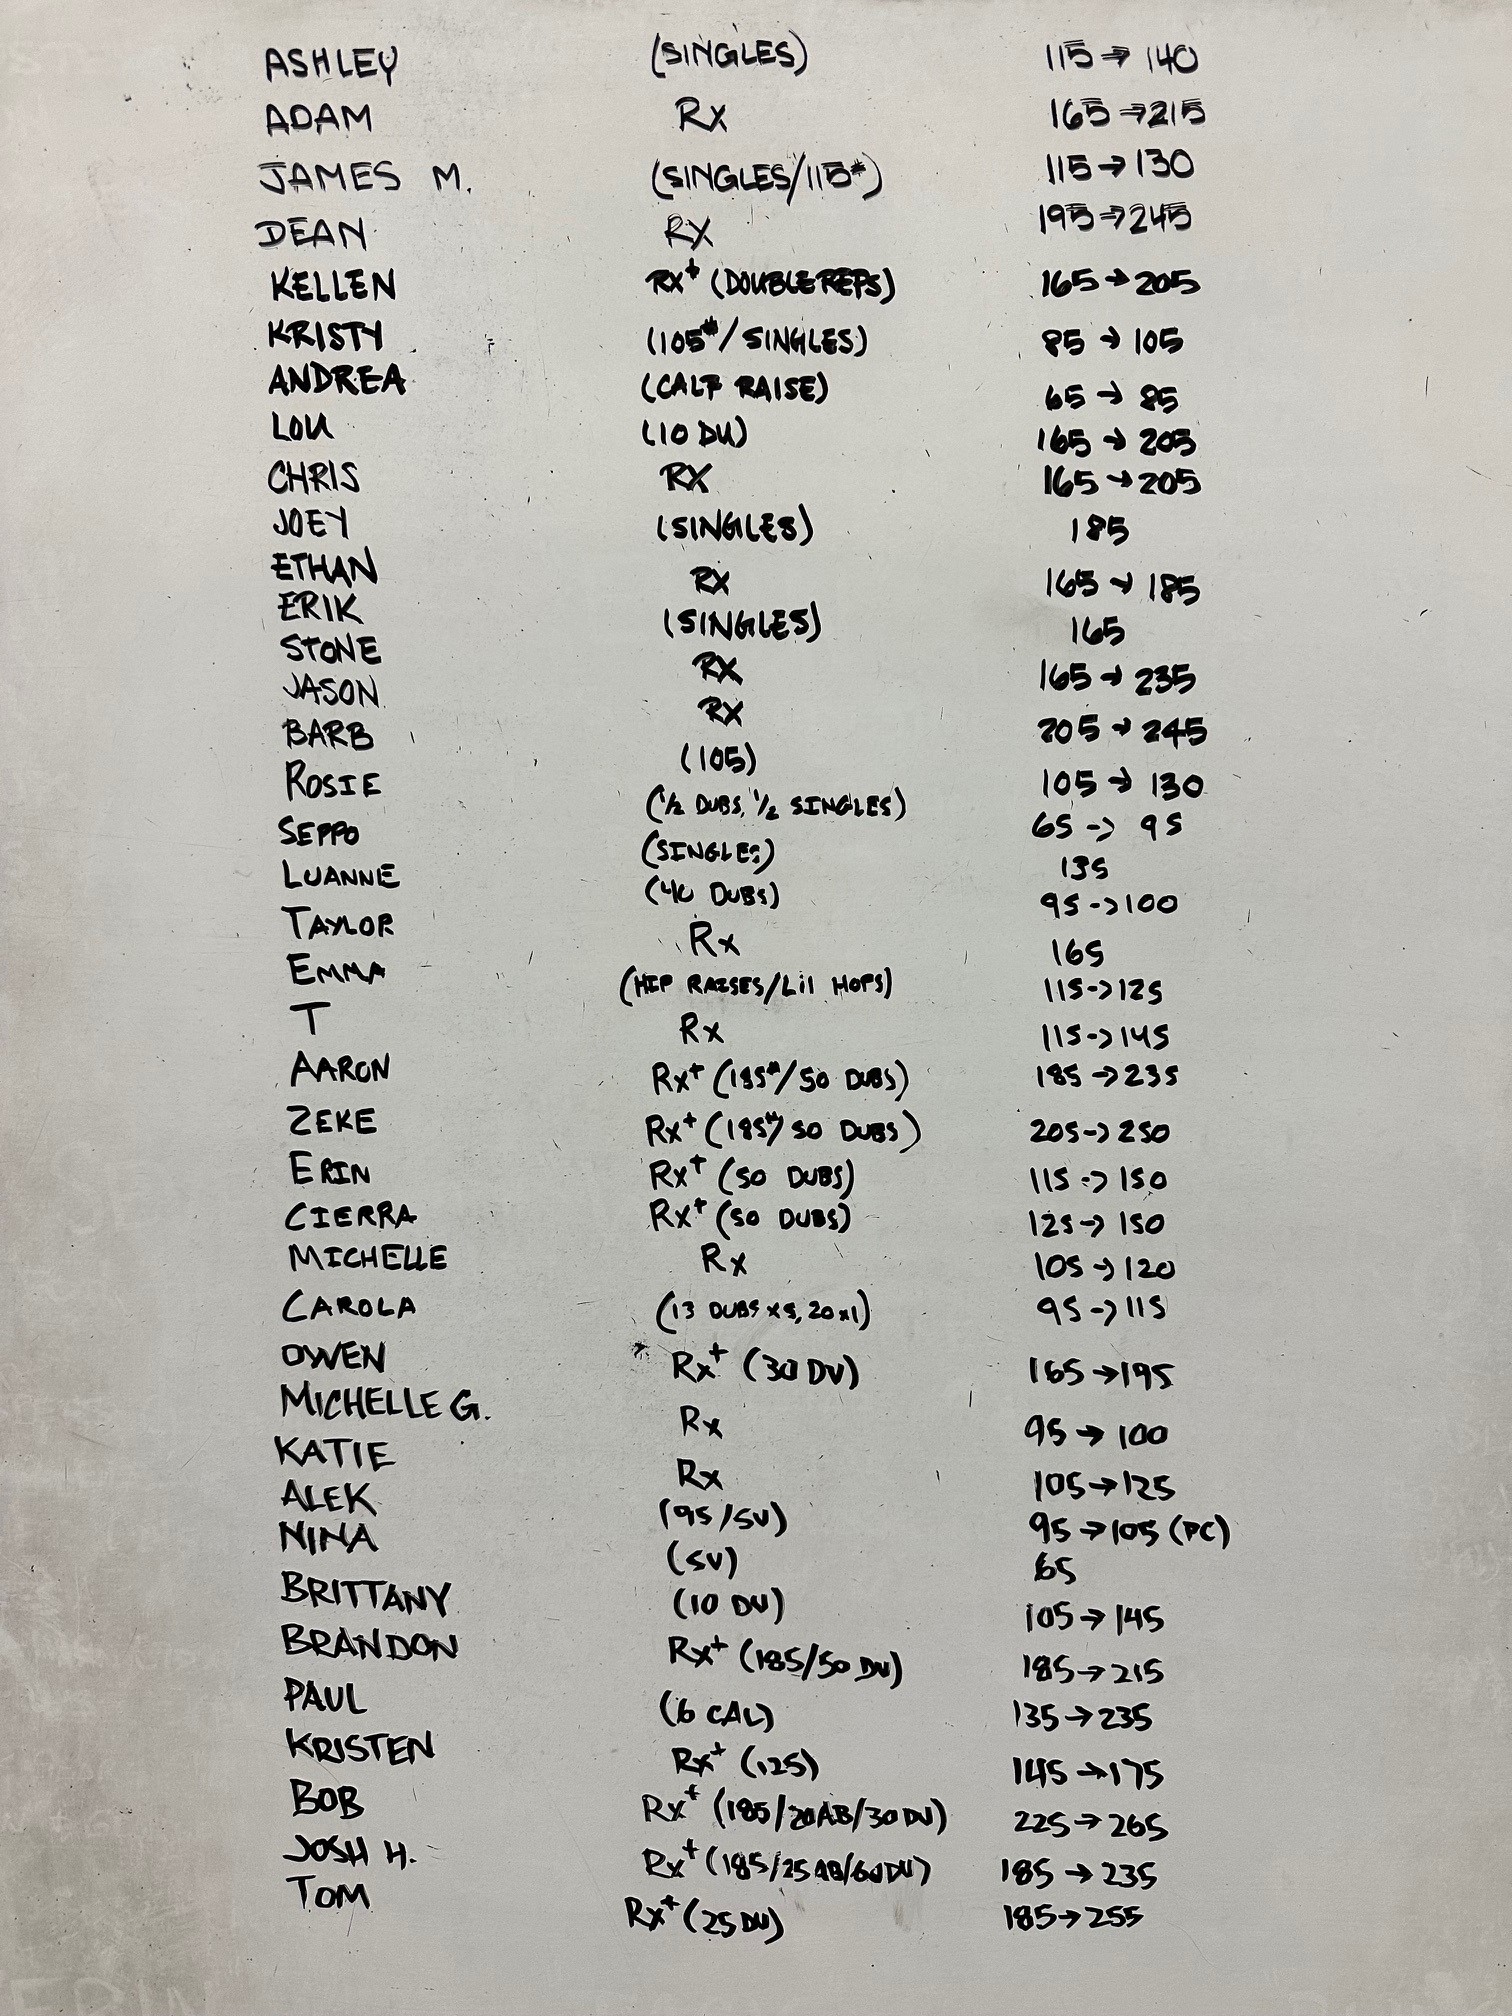 ASHLEY (SINGLES) 115→140
ADAM Rx 165→215
JAMES M. (SINGLES/115#) 115→130
DEAN RX 195→245
KELLEN RX+ (DOUBLE REPS) 165→205
KRISTY (105#/SINGLES) 85→105
ANDREA (CALF RAISE) 65→85
LOU (10 DU) 165→205
CHRIS RX 165→205
JOEY (SINGLES) 185
ETHAN RX 165→185
ERIK (SINGLES) 165
STONE RX 165→235
JASON RX 205→245
BARB (105) 105→130
ROSIE (1/2 DUBS, 1/2 SINGLES) 65→95
SEPPO (SINGLES) 135
LUANNE (40 DUBS) 95→100
TAYLOR Rx 165
EMMA (HIP RAISES/Lil HOPS) 115→125
T Rx 115→145
AARON Rx+ (185#/50 DUBS) 185→235
ZEKE Rx+ (185#/50 DUBS) 205→250
ERIN Rx+ (50 DUBS) 115→150
CIERRA Rx+ (50 DUBS) 125→150
MICHELLE Rx 105→120
CAROLA (13 DUBS x5, 20x1) 95→115
OWEN Rx+ (30 DU) 165→195
MICHELLE G. Rx 95→100
KATIE Rx 105→125
ALEK (95/SU) 95→105 (PC)
NINA (SU) 65
BRITTANY (10 DU) 105→145
BRANDON Rx+ (185/50 DU) 185→215
PAUL (6 CAL) 135→235
KRISTEN Rx+ (125) 145→175
BOB Rx+ (185/20AB/30DU) 225→265
JOSH H. Rx+ (185/25AB/60DU) 185→235
TOM Rx+ (25 DU) 185→255